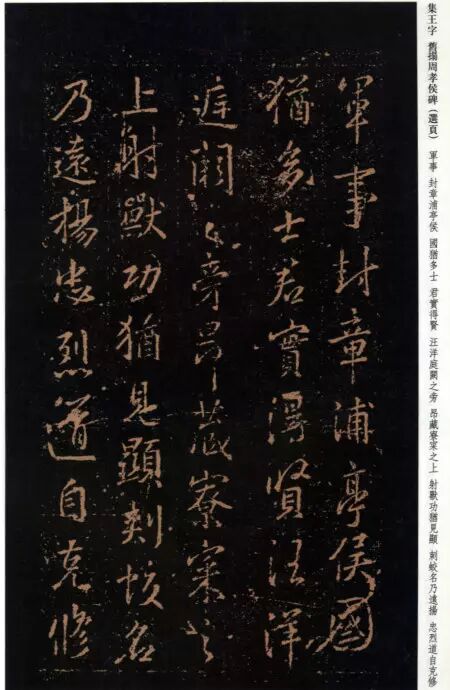 集王字 舊搨周孝侯碑（選頁） 軍事 封章浦亭侯 國猶多士 君實得賢 汪洋庭闕之旁 昂藏寮寀之上 射獸功猶見顯 刺蛟名乃遠揚 忠烈道自克修
軍事封章浦亭侯國
猶多士君實得賢汪洋
庭闕之旁昂藏寮寀之
上射獸功猶見顯刺蛟名
乃遠揚忠烈道自克修